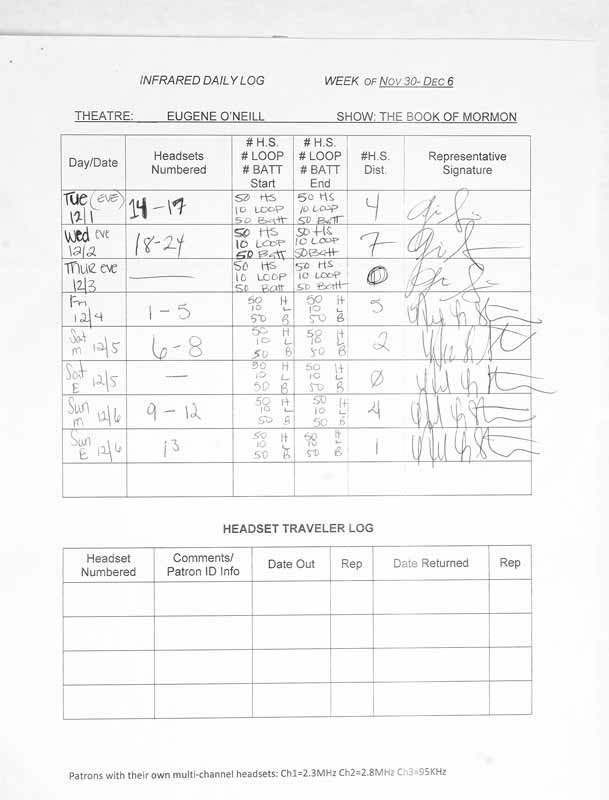 INFRARED DAILY LOG WEEK OF NOV 30- DEC 6
THEATRE: EUGENE O'NEILL SHOW: THE BOOK OF MORMON
Day/Date Headsets Numbered # H.S. # LOOP # BATT Start # H.S. # LOOP # BATT End #H.S. Dist. Representative Signature
Tue (EVE) 12/1 14-17 50 HS 10 LOOP 50 Batt 50 HS 10 LOOP 50 Batt 4
Wed eve 12/2 18-24 50 HS 10 LOOP 50 Batt 50 HS 10 LOOP 50 Batt 7
Thur eve 12/3 — 50 HS 10 LOOP 50 Batt 50 HS 10 LOOP 50 Batt 0
Fri 12/4 1-5 50 H 10 L 50 B 50 H 10 L 50 B 5
Sat m 12/5 6-8 50 H 10 L 50 B 50 H 10 L 50 B 2
Sat E 12/5 — 50 H 10 L 50 B 50 H 10 L 50 B 0
Sun m 12/6 9-12 50 H 10 L 50 B 50 H 10 L 50 B 4
Sun E 12/6 13 50 H 10 L 50 B 50 H 10 L 50 B 1
HEADSET TRAVELER LOG
Headset Numbered Comments/ Patron ID Info Date Out Rep Date Returned Rep
Patrons with their own multi-channel headsets: Ch1=2.3MHz Ch2=2.8MHz Ch3=95KHz